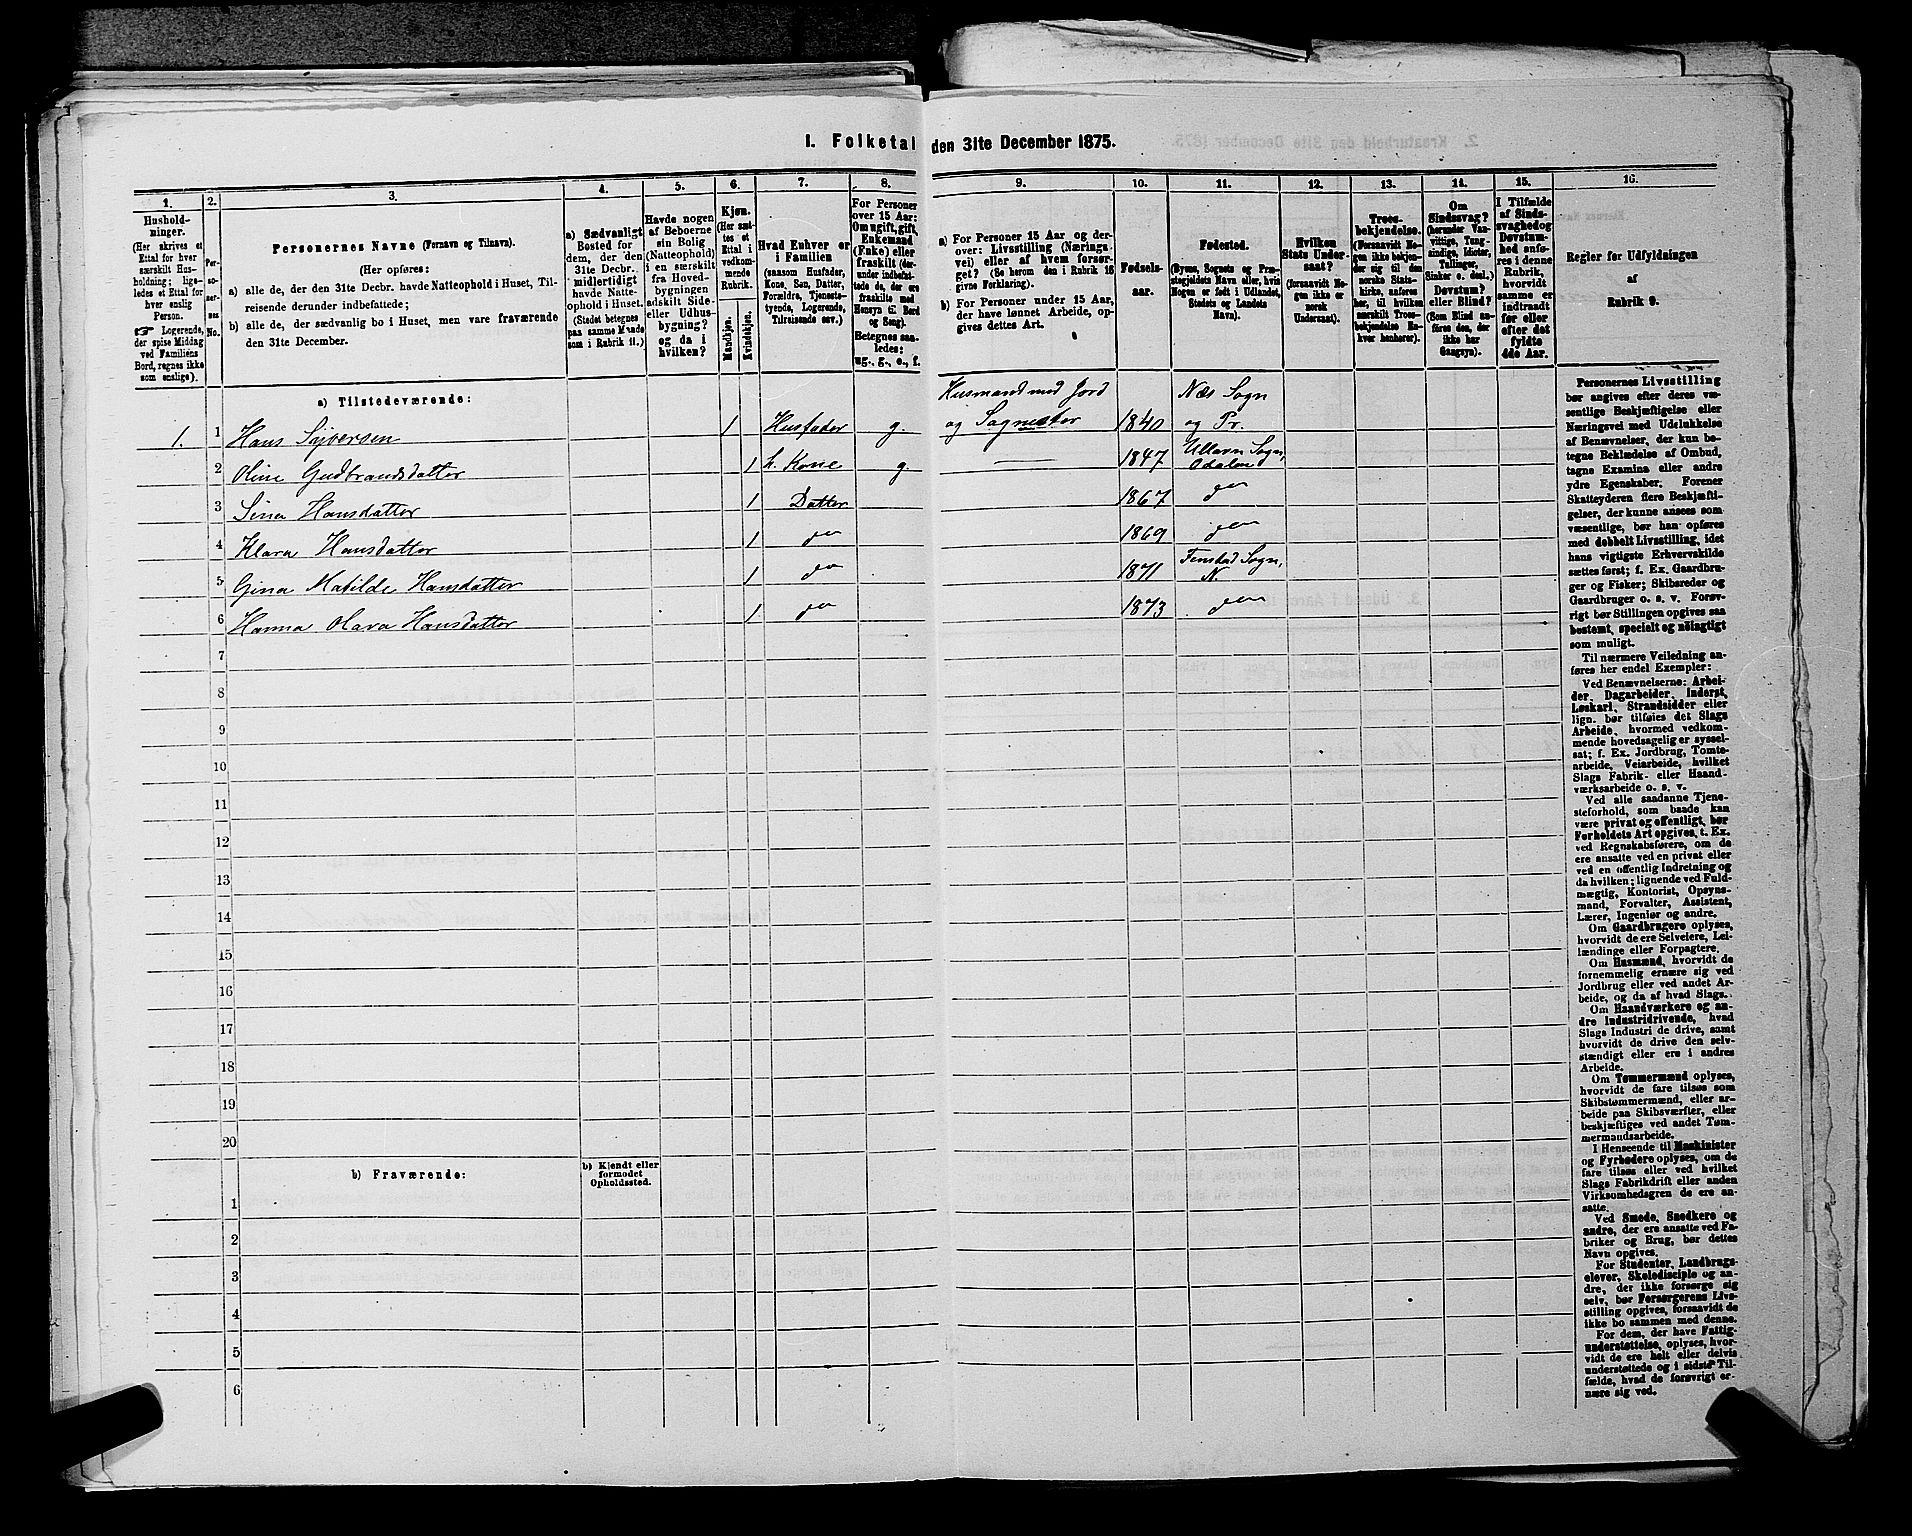 1. Folketal den 31te December 1875.
1.
2.
3.
4.
5.
6.
7.
8.
9.
10.
11.
12.
13.
14.
15.
16.
Hushold-
ninger.
(Her skrives et
Ettal for hver
særskilt Hus-
holdning; lige-
ledes et Ettal for
hver enslig
Person.
☞ Logerende,
der spise Middag
ved Familiens
Bord, regnes ikke
som enslige).
Per-
so-
ner-
nes
No.
Personernes Navne (Fornavn og Tilnavn).
(Her opføres:
a) alle de, der den 31te Decbr. havde Natteophold i Huset, Til-
reisende derunder indbefattede;
b) alle de, der sædvanlig bo i Huset, men vare fraværende
den 31te December.
a) Sædvanligt
Bosted for
dem, der den
31te Decbr.
midlertidigt
havde Natte-
ophold i Huset.
(Stedet betegnes
paa samme Maade
som i Rubrik 11.)
Havde nogen
af Beboerne
sin Bolig
(Natteophold)
i en særskilt
fra Hoved-
bygningen
adskilt Side-
eller Udhus-
bygning?
og da i
hvilken?
Kjøn.
(Her sæt-
tes et
Ettal i
vedkom-
mende
Rubrik.
Mandkjøn.
Kvindekjøn.
Hvad Enhver er
i Familien
(saasom Husfader,
Kone, Søn, Datter,
Forældre, Tjeneste-
tyende, Logerende,
Tilreisende osv.)
For Personer
over 15 Aar:
Om ugift, gift,
Enkemand
(Enke) eller
fraskilt (der-
under indbefat-
tede de, der ere
fraskilte med
Hensyn til Bord
og Seng).
Betegnes saa-
ledes:
ug., g., e., f.
a) For Personer 15 Aar og der-
over: Livsstilling (Nærings-
vei) eller af hvem forsør-
get? (Se herom den i Rubrik 16
givne Forklaring).
b) For Personer under 15 Aar,
der have lønnet Arbeide, op-
gives dettes Art.
Fødsels-
aar.
Fødested.
(Byens, Sognets og Præ-
stegjeldets Navn eller, hvis
Nogen er født i Udlandet,
Stedets og Landets
Navn).
Hvilken
Stats Under-
saat?
(forsaavidt No-
gen ikke er
norsk
Undersaat).
Troes-
bekjendelse.
(Forsaavidt No-
gen ikke bekjen-
der sig til den
norske Stats-
kirke, anføres
her, til hvilken
særskilt Troes-
bekjendelse En-
hver henhører).
Om
Sindssvag?
(herunder Van-
vittige, Tung-
sindige, Idioter,
Tullinger,
Sinker o. desl.)
Døvstum?
eller Blind?
(Som Blind an-
føres den, der
ikke har
Gangsyn).
I Tilfælde
af Sinds-
svaghed og
Døvstum-
hed anfø-
res i denne
Rubrik,
hvorvidt
samme er
indtraadt
før eller
efter det
fyldte
4de Aar.
Regler for Udfyldningen
af
Rubrik 9.
a) Tilstedeværende:
Husmand med Jord
Næs Sogn
1. 1 Hans Sijversen 1 Husfader g. og Sagmester 1840 og Pr.
2 Oline Gudbrandsdatter 1 h. Kone g. — 1847 Ullern Sogn, Odalen
3 Sina Hansdatter 1 Datter 1867 do
4 Klara Hansdatter 1 do 1869 do
5 Gina Matilde Hansdatter 1 do 1871 Fenstad Sogn, N.
6 Hanna Olava Hansdatter 1 do 1873 do
7
8
9
10
11
12
13
14
15
16
17
18
19
20
b) Fraværende:
b) Kjendt eller
formodet
Opholdssted.
1
2
3
4
5
6
Personernes Livsstilling
bør angives efter deres væ-
sentlige Beskjæftigelse eller
Næringsvei med Udelukkelse
af Benævnelser, der kun be-
tegne Beklædelse af Ombud,
tagne Examina eller andre
ydre Egenskaber. Forener
Skatteyderen flere Beskjæfti-
gelser, der kunne ansees som
væsentlige, bør han opføres
med dobbelt Livsstilling, idet
hans vigtigste Erhvervskilde
sættes først; f. Ex. Gaardbru-
ger og Fisker; Skibsreder og
Gaardbruger o. s. v. Forøv-
rigt bør Stillingen opgives saa
bestemt, specielt og nøiagtigt
som muligt.
Til nærmere Veiledning an-
føres her endel Exempler:
Ved Benævnelserne: Arbei-
der, Dagarbeider, Inderst,
Løskarl, Strandsidder eller
lign. bør tilføies det Slags
Arbeide, hvormed vedkom-
mende hovedsagelig er syssel-
sat; f. Ex. Jordbrug, Tomte-
arbeide, Veiarbeide, hvilket
Slags Fabrik- eller Haand-
værksarbeide o. s. v.
Ved alle saadanne Tjene-
steforhold, som baade kan
være privat og offentligt, bør
Forholdets Art opgives, t. Ex.
ved Regnskabsførere, om de
ere ansatte ved en privat eller
ved en offentlig Indretning og
da hvilken; lignende ved Fuld-
mægtig, Kontorist, Opsyns-
mand, Forvalter, Assistent,
Lærer, Ingeniør og andre.
Om Gaardbrugere oplyses,
hvorvidt de ere Selveiere, Lei-
lændinge eller Forpagtere.
Om Husmænd, hvorvidt de
fornemmelig ernære sig ved
Jordbrug eller ved andet Ar-
beide, og da af hvad Slags.
Om Haandværkere og an-
dre Industridrivende, hvad
Slags Industri de drive, samt
hvorvidt de drive den selv-
stændigt eller ere i andres
Arbeide.
Om Tømmermænd oplyses,
hvorvidt de fare tilsøs som
Skibstømmermænd, eller ar-
beide paa Skibsværfter, eller
beskjæftiges ved andet Tøm-
mermandsarbeide.
I Henseende til Maskinister
og Fyrbødere oplyses, om de
fare tilsøs eller ved hvilket
Slags Fabrikdrift eller anden
Virksomhedsgren de ere an-
satte.
Ved Smede, Snedkere og
andre, der ere ansatte ved Fa-
briker og Brug, bør dettes
Navn opgives.
For Studenter, Landbrugs-
elever, Skoledisciple og an-
dre, der ikke forsørge sig
selv, bør Forsørgerens Livs-
stilling opgives, forsaavidt de
ikke bo sammen med denne.
For dem, der have Fattig-
understøttelse, oplyses, hvor-
vidt de ere helt eller delvis
understøttede og i sidste Til-
fælde, hvad de forøvrigt er-
nære sig ved.